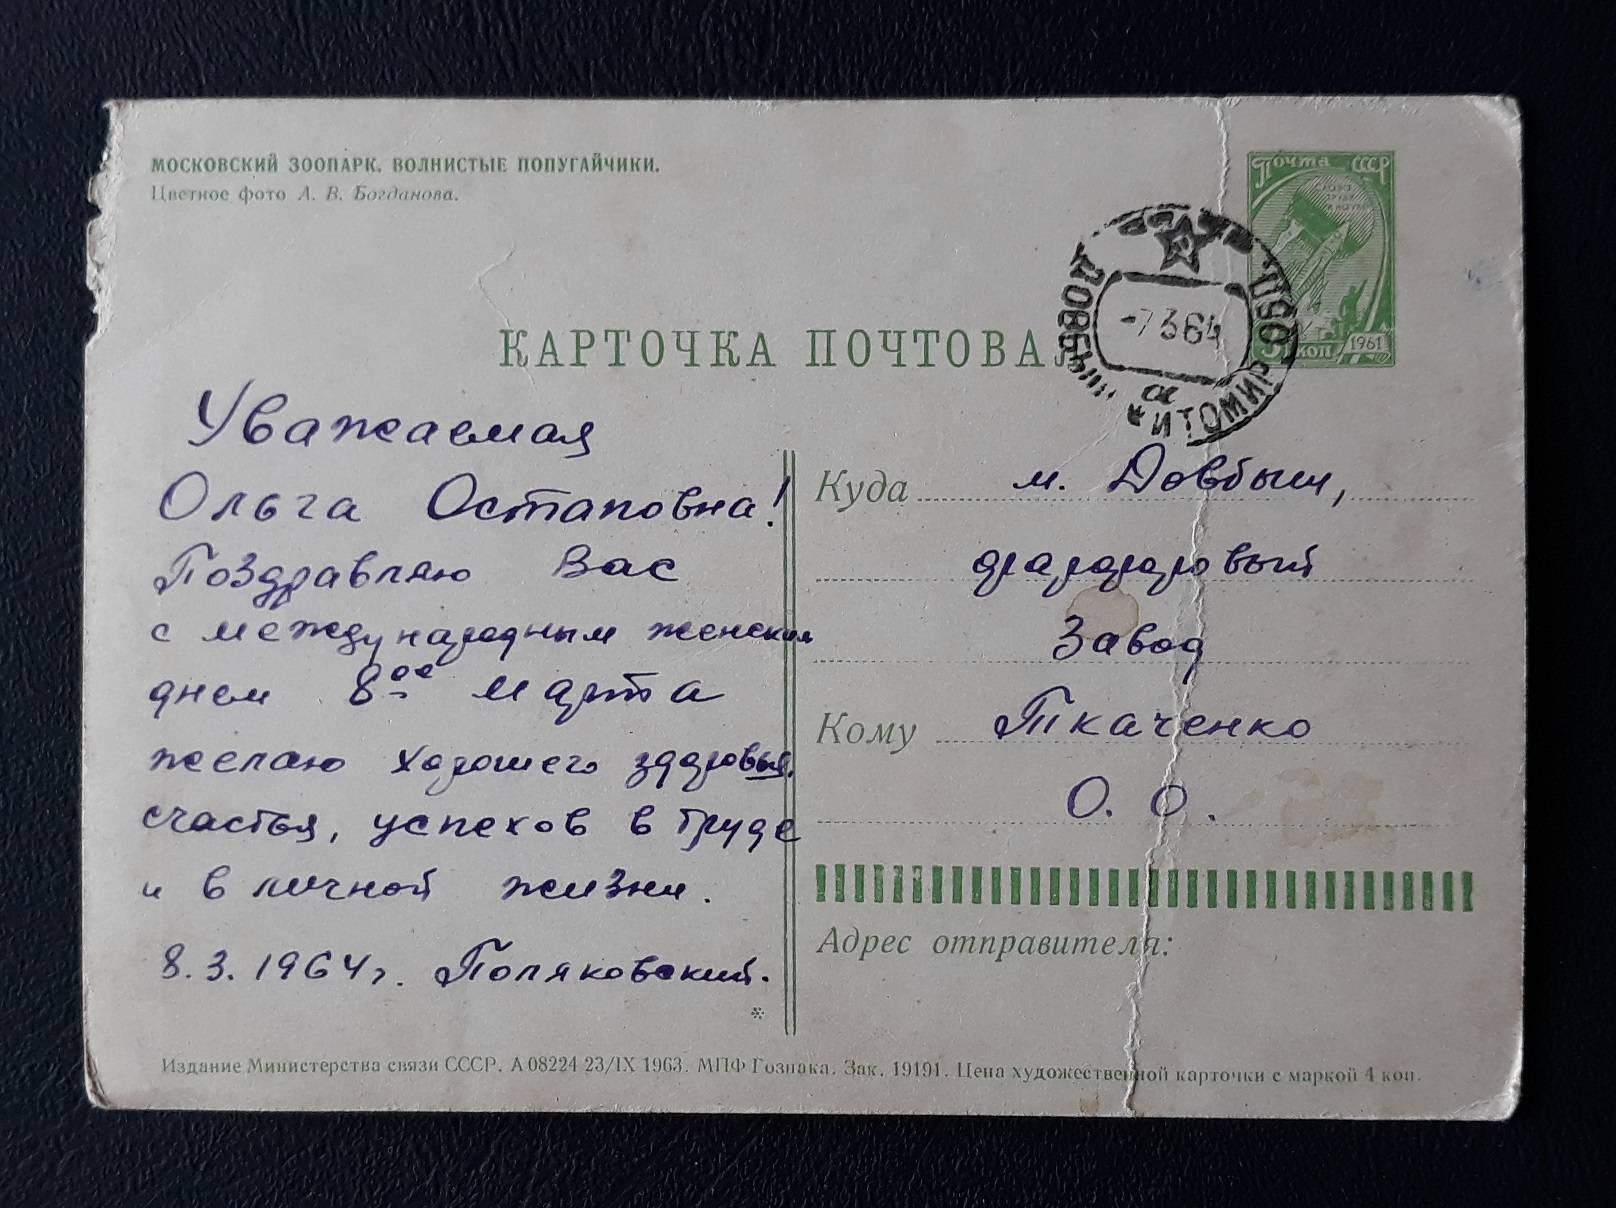 МОСКОВСКИЙ ЗООПАРК. ВОЛНИСТЫЕ ПОПУГАЙЧИКИ.
Цветное фото А. В. Богданова.
Почта СССР
КОП 1961
-7 3 64
ДОВБЫШ
ЖИТОМИР
КАРТОЧКА ПОЧТОВАЯ
Уважаемая
Ольга Остаповна!
Поздравляю Вас
с международным женским
днем 8ое марта
желаю хорошего здоровья,
счастья, успехов в труде
и в личной жизни.
8.3.1964г. Поляковский.
Куда м. Довбыш,
фарфоровый
Завод
Кому Ткаченко
О. О.
Адрес отправителя:
Издание Министерства связи СССР. А 08224 23/IX 1963. МПФ Гознака. Зак. 19191. Цена художественной карточки с маркой 4 коп.